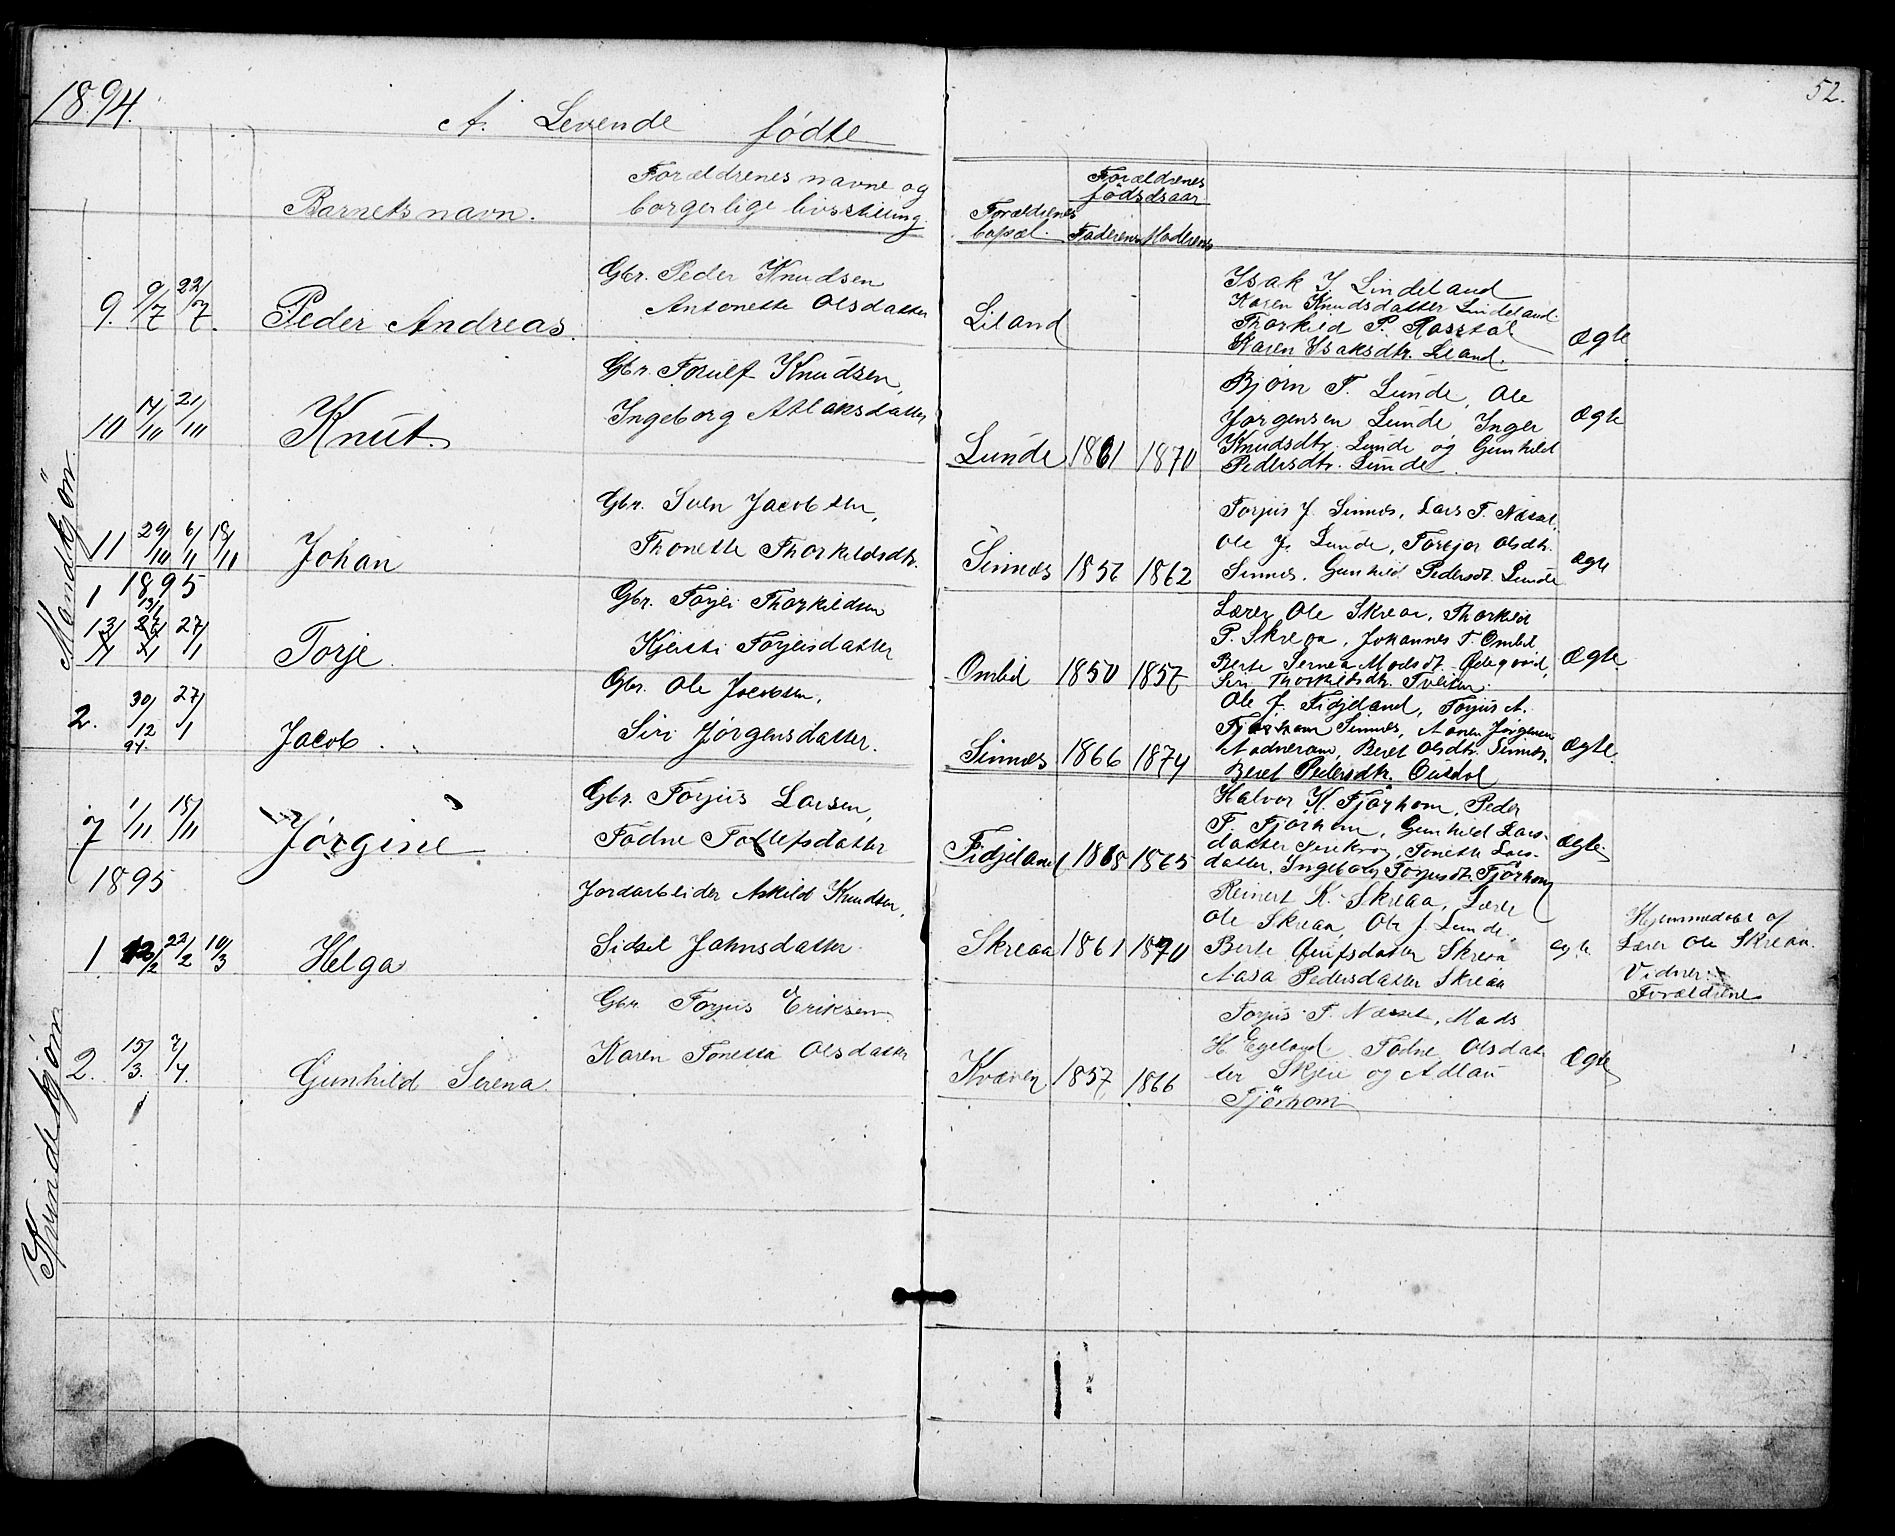 1894.
52.
A. Levende fødte
Barnets navn.
Forældrenes navne og
borgerlige livsstilling.
Forældrenes
bopæl.
Forældrenes
fødselsaar
Faderens Moderens
Mandkjön.
9. 9/7 22/7. Peder Andreas.
Gbr. Peder Knudsen
Antonette Olsdatter
Liland
Isak I. Lindeland
Karen Knudsdatter Lindeland.
Thorkild P. Rosstøl
Karen Isaksdtr. Liland.
Ægte
10 14/10 21/10 Knut.
Gbr. Torulf Knudsen,
Ingeborg Atlaksdatter
Lunde 1861 1870
Bjørn T. Lunde, Ole
Jørgensen Lunde, Inger
Knudsdtr. Lunde og Gunhild
Pedersdtr. Lunde.
Ægte
11 29/10 6/11 18/11 Johan
Gbr. Sven Jacobsen,
Thonette Thorkildsdtr.
Sinnes 1856 1862
Torjus J. Sinnes, Lars T. Nesset,
Ole J. Lunde, Torbjor Olsdtr.
Sinnes, Gunhild Pedersdt. Lunde
Ægte
1895
1 13/1 27/1 Torje.
Gbr. Torjei Thorkildsen
Kjersti Torjeisdatter
Omlid 1850 1857
Lærer Ole Skreaa, Thorkild
P. Skreaa, Johannes T. Omlid
Berte Serina Madsdt. Ødegaard,
Siri Thorkildsdtr. Tveiten.
Ægte
2. 30/12 94 27/1 Jacob.
Gbr. Ole Jacobsen,
Siri Jørgensdatter.
Sinnes 1866 1874
Ole J. Fidjeland, Torjus A.
Sinnes, Aanen Jörgensen
Beret Olsdtr. Sinnes,
Beret Pedersdtr. Ousdal
Ægte
Kvindekjøn
7 1/11 18/11 Jørgine.
Gbr. Torjus Larsen,
Tadne Tollefsdatter
Fidjeland 1865
Halvor K. Fjørhom, Peder
T. Fjörhom, Gunhild Lars-
datter, Tonette Lars-
datter, Ingeborg Torjusdt. Fjörhom
Ægte.
1895
1. 22/2 10/3 Helga
Jordarbeider Askild Knudsen,
Sidsel Johnsdatter.
Skreaa 1861 1870
Reinert K. Skreaa, Lærer
Ole Skreaa, Ole J. Lunde.
Berte Skreaa
Aasa Pedersdatter Skreaa
Ægte
Hjemmedøbt af
Lærer Ole Skreaa.
Vidner:
Forældrene
2. 15/3. 7/4. Gunhild Serena.
Gbr. Torjus Eriksen.
Karen Tonetta Olsdatter
Kvæven 1857 1866
Torjus T. Nesset, Mads
H. Egeland, Tadne Olsdat-
ter Skjere og Adlau
Fjörhom
Ægte